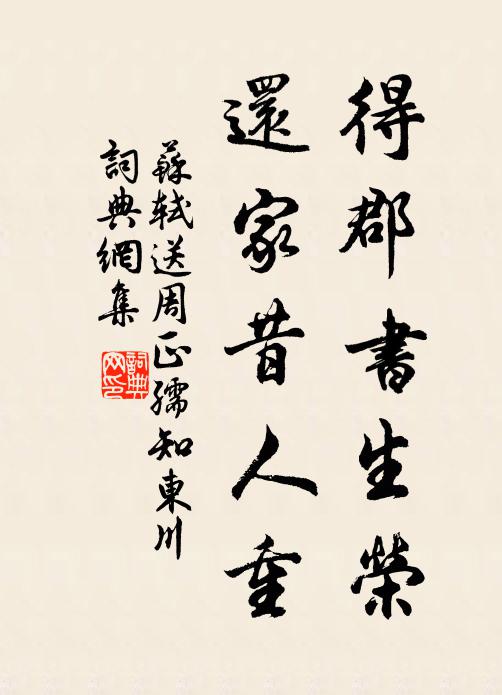 得郡書生榮
還家昔人重
蘇軾送周正孺知東川
詞典網集
詞典網印